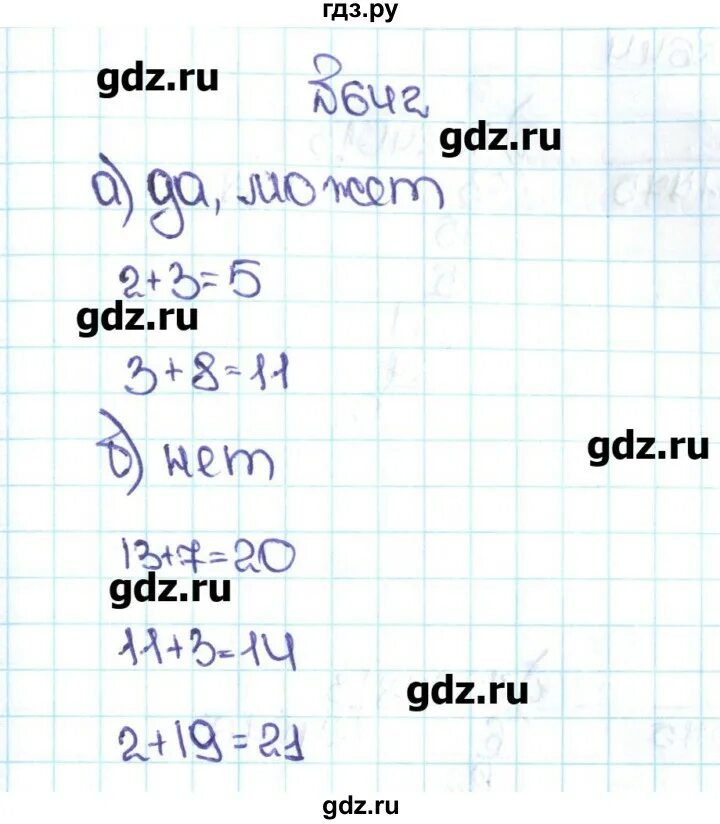 гдз.ру
gdz.ru
№642
gdz.ru
а) да, может
2+3=5
gdz.ru
3+8=11
б) нет
gdz.ru
13+7=20
gdz.ru
11+3=14
gdz.ru
2+19=21
gdz.ru